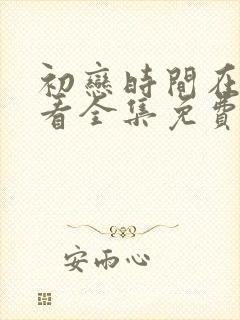 初戀時間在
看全集免費
安雨心